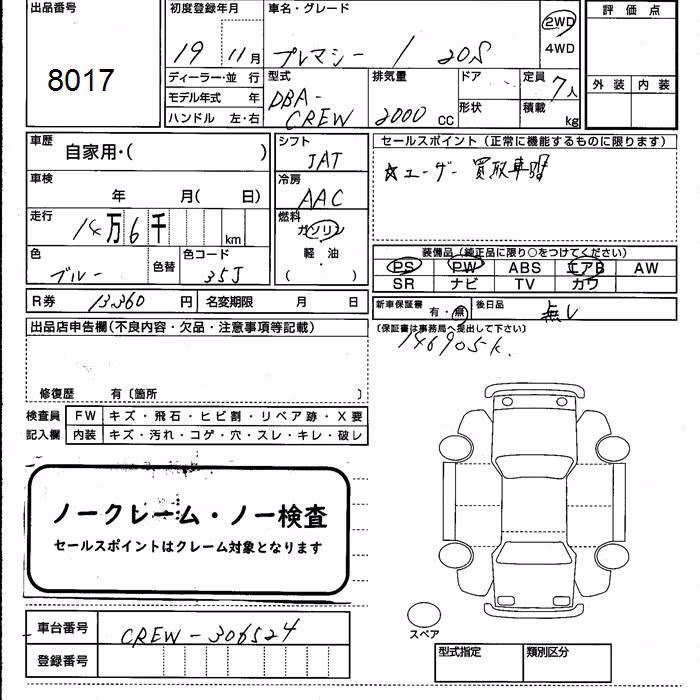 出品番号
8017
初度登録年月
19 11月
車名・グレード
プレマシー / 20S
2WD
4WD
評価点
外装 内装
ディーラー・並 行
モデル年式 年
ハンドル 左・右
型式
DBA-
CREW
排気量
2000 CC
ドア
形状
定員 7人
積載 kg
車歴
自家用・( )
シフト
JAT
セールスポイント(正常に機能するものに限ります)
☆ユーザー買取車
車検
年 月( 日)
冷房
AAC
走行
14万6千 km
燃料
ガソリン
軽・油
( )
色
ブルー
色替
色コード
35J
装備品(純正品に限り○をつけてください)
PS PW ABS エアB AW
SR ナビ TV カワ
R券 13360 円 名変期限 月 日
新車保証書
有・無
後日品
無し
(保証書は事務局へ提出して下さい)
146905k.
出品店申告欄(不良内容・欠品・注意事項等記載)
修復歴 有〔箇所 〕
検査員
記入欄
FW キズ・飛石・ヒビ割・リペア跡・X要
内装 キズ・汚れ・コゲ・穴・スレ・キレ・破レ
ノークレーム・ノー検査
セールスポイントはクレーム対象となります
車台番号
CREW-306524
登録番号
スペア
型式指定 類別区分